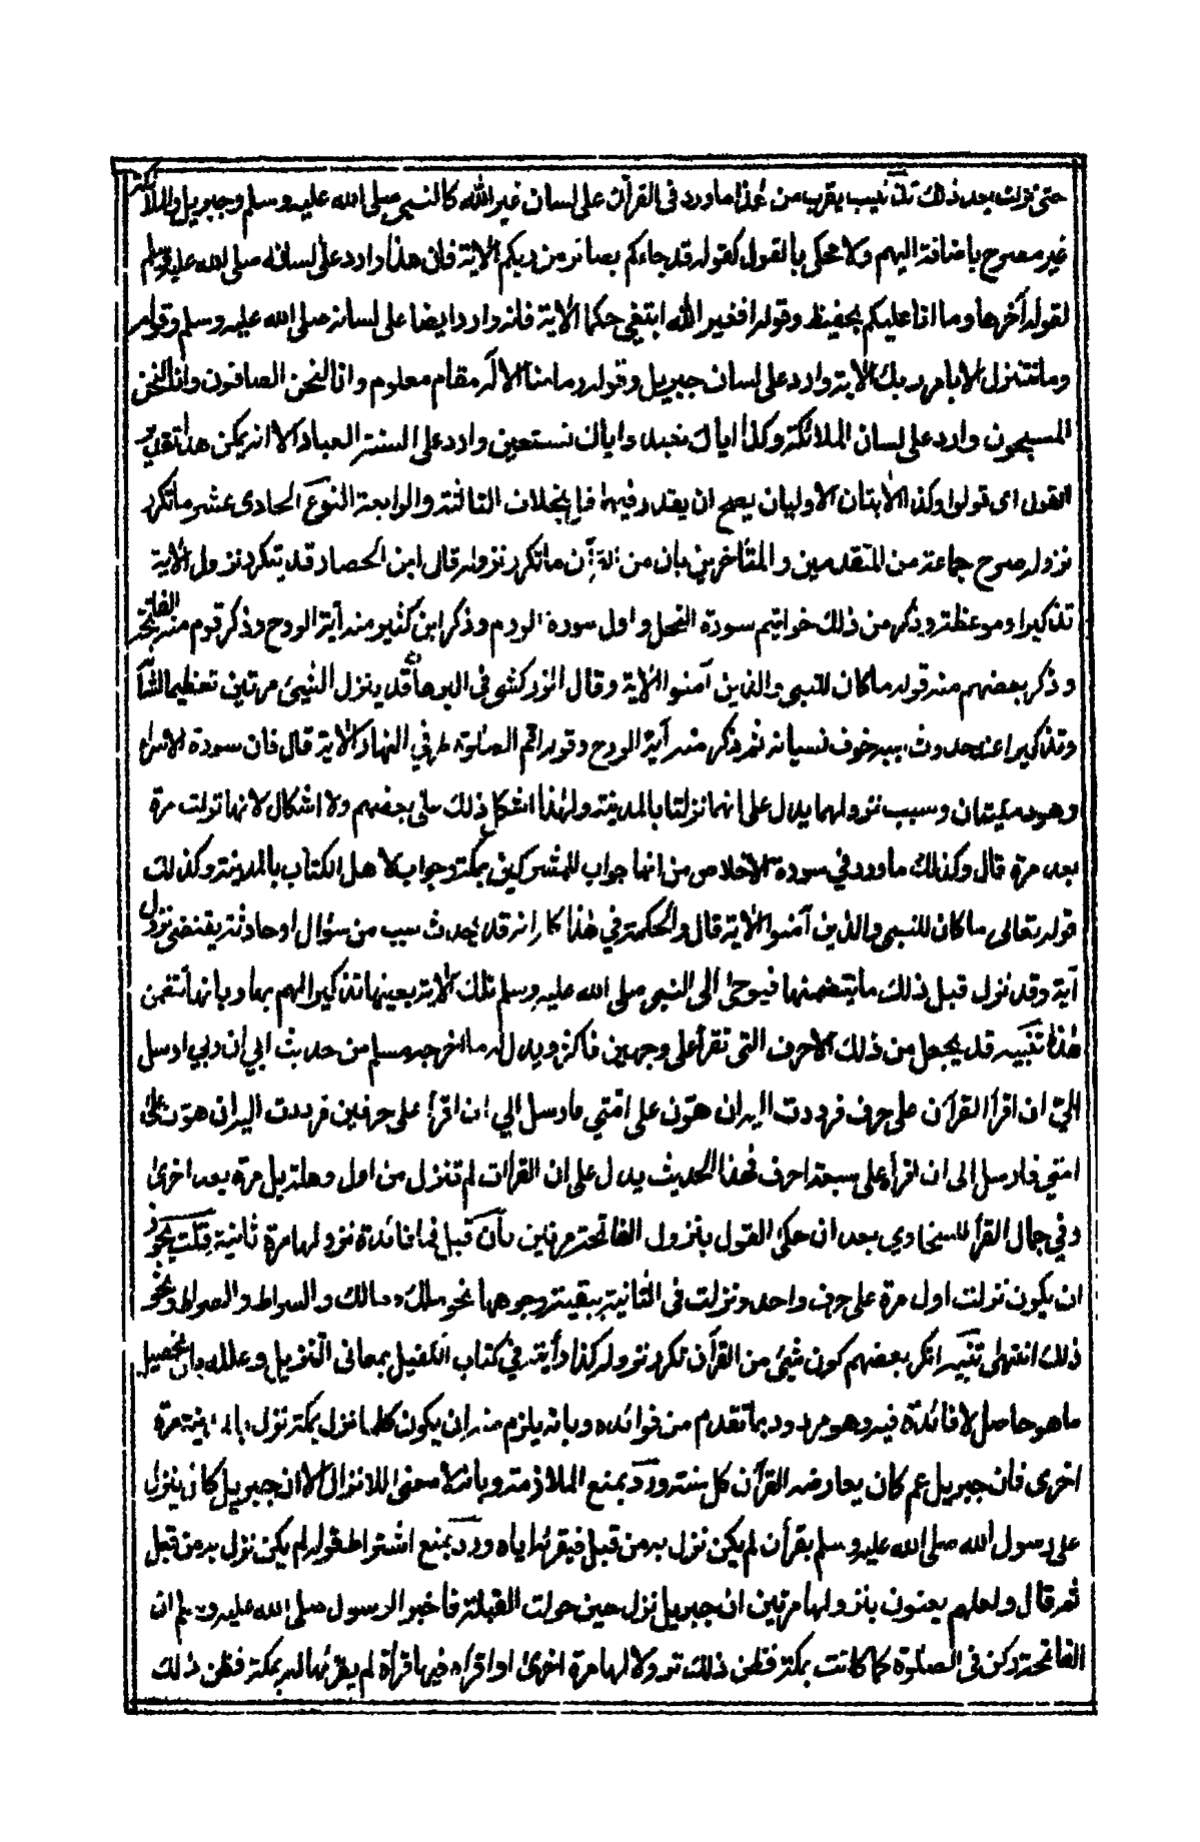 حتى نزلت بعد ذلك تذنيب يقرب من هذا ما ورد فى القرآن على لسان غير الله كالنبي صلى الله عليه وسلم وجبريل والملائكة
غير مصرح باضافته اليهم ولا محكى بالقول كقوله قد جاءكم بصائر من ربكم الاية فان هذا وارد على لسانه صلى الله عليه وسلم
لقوله آخرها وما انا عليكم بحفيظ وقوله افغير الله ابتغي حكما الاية فانه وارد ايضا على لسانه صلى الله عليه وسلم وقوله
وما نتنزل الا بامر ربك الاية وارد على لسان جبريل وقوله وما منا الا له مقام معلوم وانا لنحن الصافون وانا لنحن
المسبحون وارد على لسان الملائكة وكذا اياك نعبد واياك نستعين وارد على السنة العباد الا انه يمكن هنا تقدير
القول اى قولوا وكذا الايتان الاوليان يصح ان يقدر فيهما قل بخلاف الثالثة والرابعة النوع الحادى عشر ما تكرر
نزوله صرح جماعة من المتقدمين والمتأخرين بان من القرآن ما تكرر نزوله قال ابن الحصار قد يتكرر نزول الاية
تذكيرا وموعظة وذكر من ذلك خواتيم سورة النحل واول سورة الروم وذكر ابن كثير منه آية الروح وذكر قوم منه الفاتحة
وذكر بعضهم منه قوله ما كان للنبي والذين آمنوا الاية وقال الزركشى فى البرهان قد ينزل الشيئ مرتين تعظيما لشأنه
وتذكيرا عند حدوث سببه خوف نسيانه ثم ذكر منه آية الروح وقوله اقم الصلوة طرفي النهار الاية قال فان سورة الاسراء
وهود مكيتان وسبب نزولهما يدل على انهما نزلتا بالمدينة ولهذا اشكل ذلك على بعضهم ولا اشكال لانها نزلت مرة
بعد مرة قال وكذلك ما ورد في سورة الاخلاص من انها جواب للمشركين بمكة وجواب لاهل الكتاب بالمدينة وكذلك
قوله تعالى ما كان للنبي والذين آمنوا الاية قال والحكمة في هذا كله انه قد يحدث سبب من سؤال او حادثة يقتضى نزول
آية وقد نزل قبل ذلك ما يتضمنها فيوحى الى النبي صلى الله عليه وسلم تلك الاية بعينها تذكيرا لهم بها وبانها تتضمن
هذا تنبيه قد يجعل من ذلك الاحرف التى تقرأ على وجهين فاكثر ويدل له ما اخرجه مسلم من حديث ابي ان ربي ارسل
الي ان اقرأ القرآن على حرف فرددت اليه ان هون على امتي فارسل الي ان اقرأ على حرفين فرددت اليه ان هون على
امتي فارسل الى ان اقرأه على سبعة احرف فهذا الحديث يدل على ان القرات لم تنزل من اول وهلة بل مرة بعد اخرى
وفي جمال القرأ للسخاوي بعد ان حكى القول بنزول الفاتحة مرتين فان قيل فما فائدة نزولها مرة ثانية قلت يجوز
ان يكون نزلت اول مرة على حرف واحد ونزلت فى الثانية ببقية وجوهها نحو ملك ومالك والسراط والصراط ونحو
ذلك انتهى تنبيه انكر بعضهم كون شيئ من القرآن تكرر نزوله كذا رأيته في كتاب الكفيل بمعانى التنزيل وعلله بان تحصيل
ما هو حاصل لا فائدة فيه وهو مردود بما تقدم من فوائده وبانه يلزم منه ان يكون كلما نزل بمكة نزل بالمدينة مرة
اخرى فان جبريل عم كان يعارضه القرآن كل سنة ورد بمنع الملازمة وبانه لا معنى للانزال الا ان جبريل كان ينزل
على رسول الله صلى الله عليه وسلم بقرأن لم يكن نزل به من قبل فيقرئه اياه ورد بمنع اشتراط قوله لم يكن نزل به من قبل
ثم قال ولعلهم يعنون بنزولها مرتين ان جبريل نزل حين حولت القبلة فاخبر الرسول صلى الله عليه وسلم ان
الفاتحة ركن فى الصلوة كما كانت بمكة فظن ذلك نزولا لها مرة اخرى او اقرأه فيها قرأة لم يقرئها له بمكة فظن ذلك